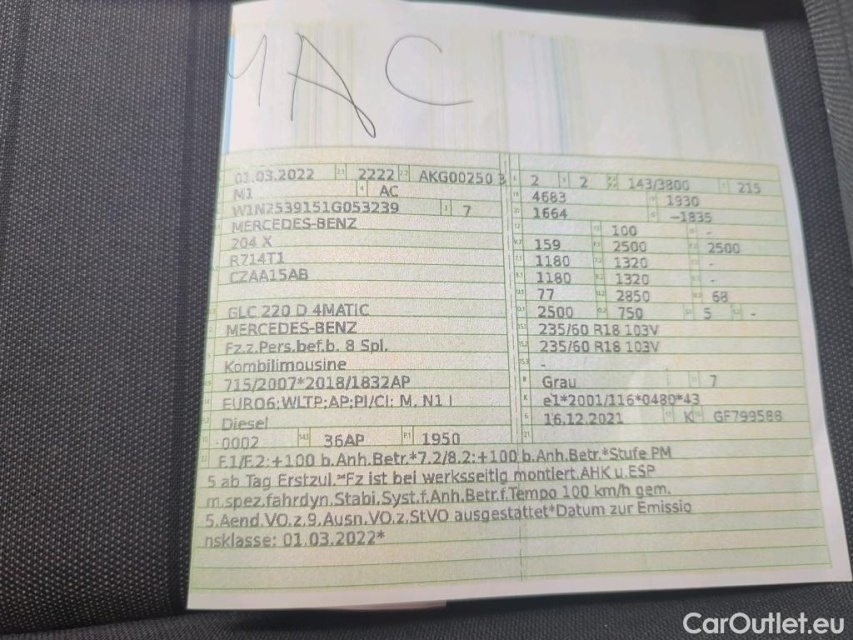 MAC
01.03.2022 2222 AKG00250 3 2 2 143/3800 215
M1 AC 4683 1930
W1N2539151G053239 7 1664 —1835
MERCEDES-BENZ 100 -
204 X 159 2500 2500
R714T1 1180 1320 -
CZAA15AB 1180 1320 -
77 2850 68
GLC 220 D 4MATIC 2500 750 5 -
MERCEDES-BENZ 235/60 R18 103V
Fz.z.Pers.bef.b. 8 Spl. 235/60 R18 103V
Kombilimousine -
715/2007*2018/1832AP Grau 7
EURO6;WLTP;AP;PI/CI; M, N1 I e1*2001/116*0480*43
Diesel 16.12.2021 K GF799588
0002 36AP 1950
F.1/F.2:+100 b.Anh.Betr.*7.2/8.2:+100 b.Anh.Betr.*Stufe PM
5 ab Tag Erstzul.*Fz ist bei werksseitig montiert.AHK u.ESP
m.spez.fahrdyn.Stabi.Syst.f.Anh.Betr.f.Tempo 100 km/h gem.
5.Aend.VO.z.9.Ausn.VO.z.StVO ausgestattet*Datum zur Emissio
nsklasse: 01.03.2022*
CarOutlet.eu